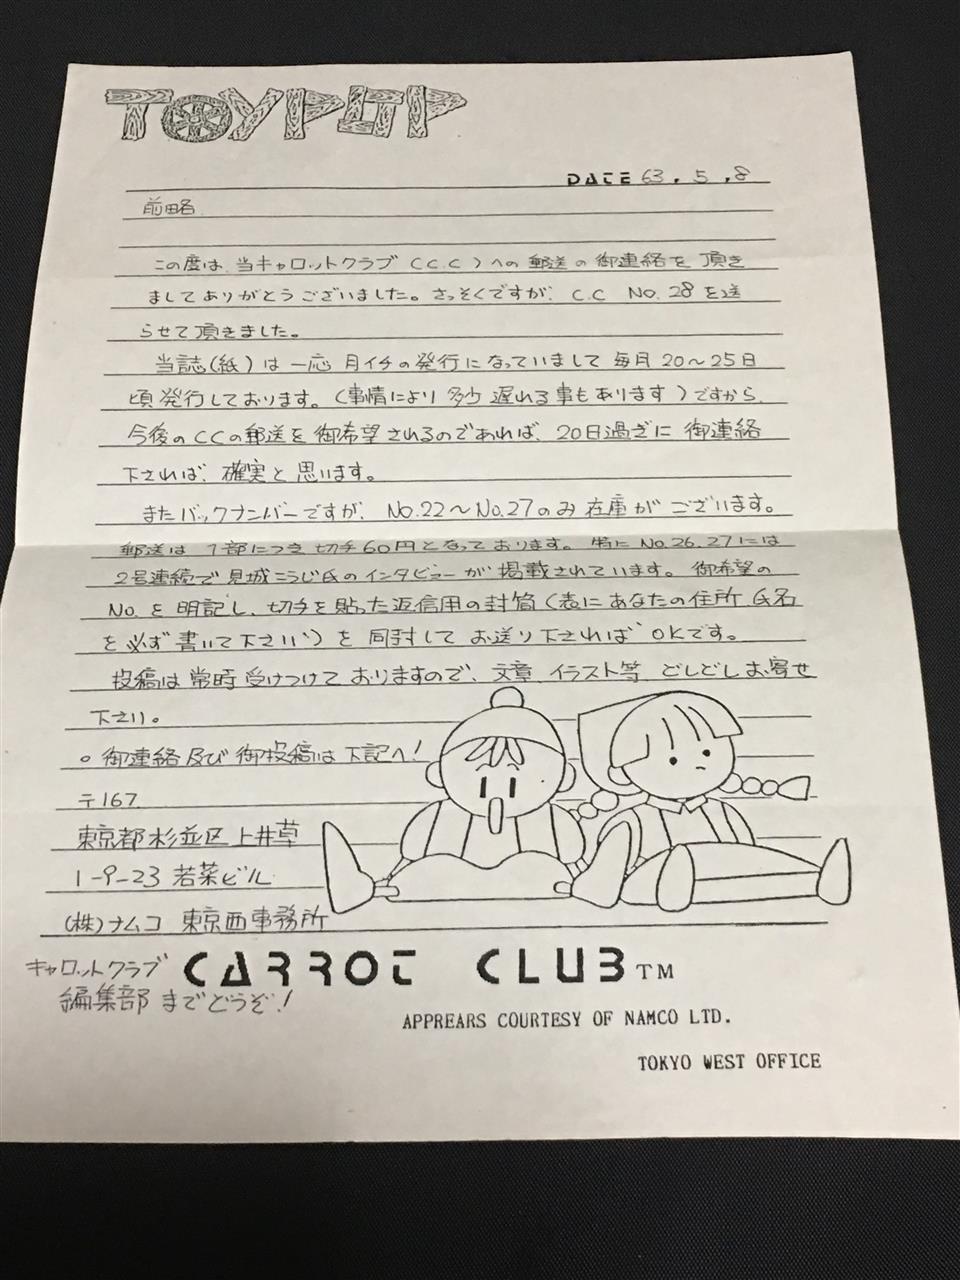 TOYPOP
DATE 63.5.8
前略
この度は、当キャロットクラブ(C.C)への郵送の御連絡を頂き
ましてありがとうございました。さっそくですが、C.C No.28を送
らせて頂きました。
当誌(紙)は一応月イチの発行になっていまして毎月20〜25日
頃発行しております。(事情により多少遅れる事もあります)ですから、
今後のCCの郵送を御希望されるのであれば、20日過ぎに御連絡
下されば、確実と思います。
またバックナンバーですが、No.22〜No.27のみ在庫がございます。
郵送は1部につき切手60円となっております。特にNo.26.27には
2号連続で見城こうじ氏のインタビューが掲載されています。御希望の
No.を明記し、切手を貼った返信用の封筒(表にあなたの住所、氏名
を必ず書いて下さい)を同封してお送り下さればOKです。
投稿は常時受けつけておりますので、文章、イラスト等、どしどしお寄せ
下さい。
○御連絡及び御投稿は下記へ!
〒167
東京都杉並区上井草
1-9-23 若菜ビル
(株)ナムコ 東京西事務所
キャロットクラブ CARROT CLUB TM
編集部までどうぞ!
APPREARS COURTESY OF NAMCO LTD.
TOKYO WEST OFFICE